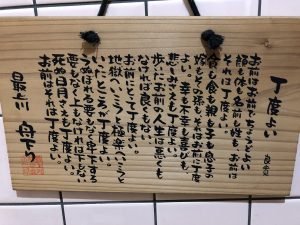 丁度よい
良寛
お前はお前でちょうどよい
顔も体も名前も姓も お前に
それは丁度よい
貧も富も親も子も息子の
嫁もその孫もそれはお前に丁度
よい 幸も不幸も喜びも
悲しみさえも丁度よい
歩いたお前の人生は悪くも
なければ良くもない
お前にとって丁度よい
地獄へ行こうと極楽へ行こうと
いったところが丁度よい
うぬぼれる要もなく卑下する
要もなく上もなければ下もない
死ぬ日月さえも丁度よい
お前はそれは丁度よい
最上川 舟下り